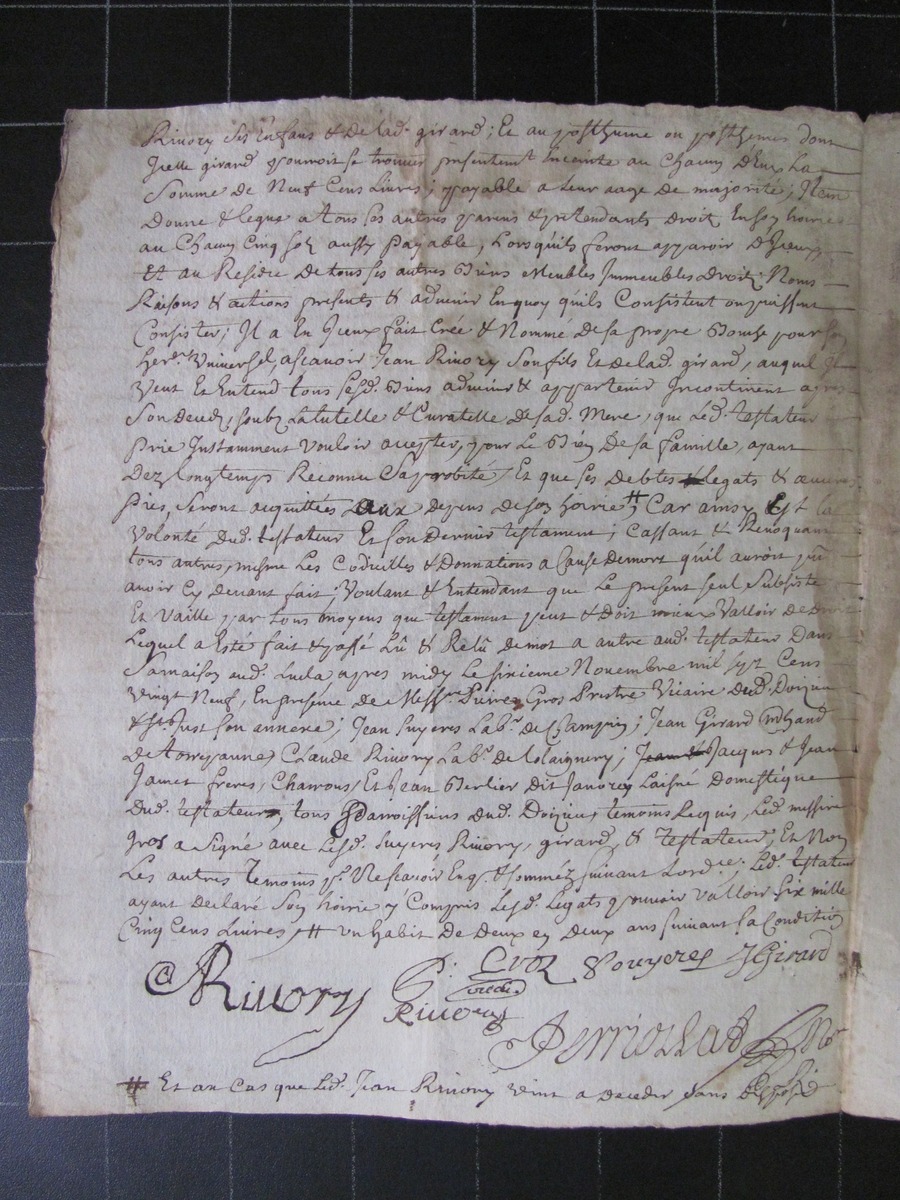 Rivory ses Enfans & de lad. girard; Et au posthume ou posthumes dont
Icelle girard pourroit se trouver presentemt. Enceinte au Chacun d'Eux La
Somme de Neuf Cens Livres; payable a leur aage de majorité; Item
Donne & legue a tous ses autres parens & pretendants droit En son hoirie
au Chacun Cinq sols aussy payable, Lorsqu'ils feront apparoir d'Iceux
Et au Residue de tous ses autres Biens Meubles Immeubles droits Noms
Raisons & actions presents & advenir En quoy qu'ils Consistent ou puissent
Consister; Il a En Iceux fait Crée & Nommé de sa propre Bouche pour son
herer. Universel, ascavoir Jean Rivory Son fils Et de lad. girard, auquel Il
Veut Et Entend tous sesd. Biens advenir & appartenir Incontinent apres
Son decedz, soubz La tutelle & Curatelle de sad. Mere, que led. testateur
Prie Instamment vouloir accepter, pour Le Bien de sa famille, ayant
Dez longtemps Reconnu Sa probité; Et que ses debtes legats & oeuvres
Pies, seront acquittées aux depens de son hoirie # Car ainsy Est la
volonté dud. testateur Et son dernier testament; Cassant & Revoquant
tous autres, mesme Les Codicilles & Donnations a Cause de mort qu'il auroit pû
avoir Cy devant fait; Voulant & Entendant que Le present seul Subsiste
Et Vaille par tous moyens que testament peut & doit mieux Valloir de Droit
Lequel a Esté fait & passé Lû & Relû de mot a autre aud. testateur Dans
Sa maison aud. Lucla apres midy Le sixieme Novembre mil sept Cens
vingt Neuf, En presence de Messre. Pierre Gros Prestre Vicaire dud. Doizieu
& St. Just son annexe; Jean Suyeres Labr. de Champin; Jean Girard mchand
de torrepanne, Claude Rivory Labr. de Colaignery; Jacques & Jean
Jamet freres, Charrons, Et Jean Berlier dit Janorey Laisné Domestique
Dud. testateur, tous Parroissiens dud. Doizieu, temoins Lequis, Led. messire
gros a Signé avec Lesd. Suyeres Rivory, girard, & testateur, Et Non
Les autres Temoins pr. Ne scavoir Enq. & sommez suivant Lordce.; Led. testateur
ayant declaré Son hoirie y Compris Lesd. Legats pouvoir valloir six mille
Cinq Cens Livres # un habit de Deux en Deux ans suivant sa Condition
Rivory Gros vicaire Souyeres J Girard
Rivory
# Et au Cas que Led. Jean Rivory vint a deceder sans